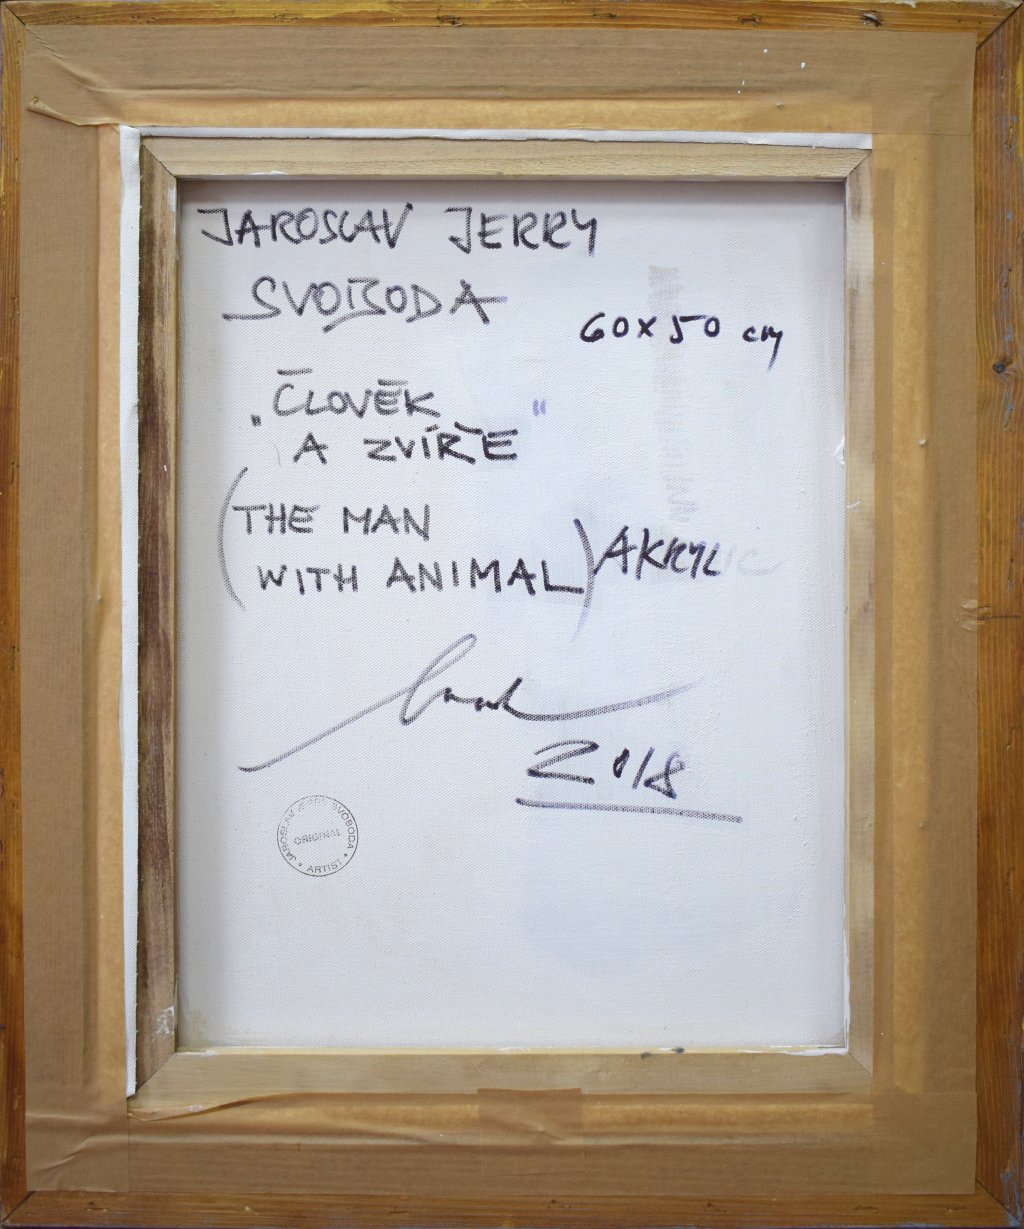 JAROSLAV JERRY
SVOBODA
60x50 cm
„ČLOVĚK "
A ZVÍŘE
(THE MAN
WITH ANIMAL) AKRYL
2018
JAROSLAV JERRY SVOBODA
ORIGINAL
• ARTIST •